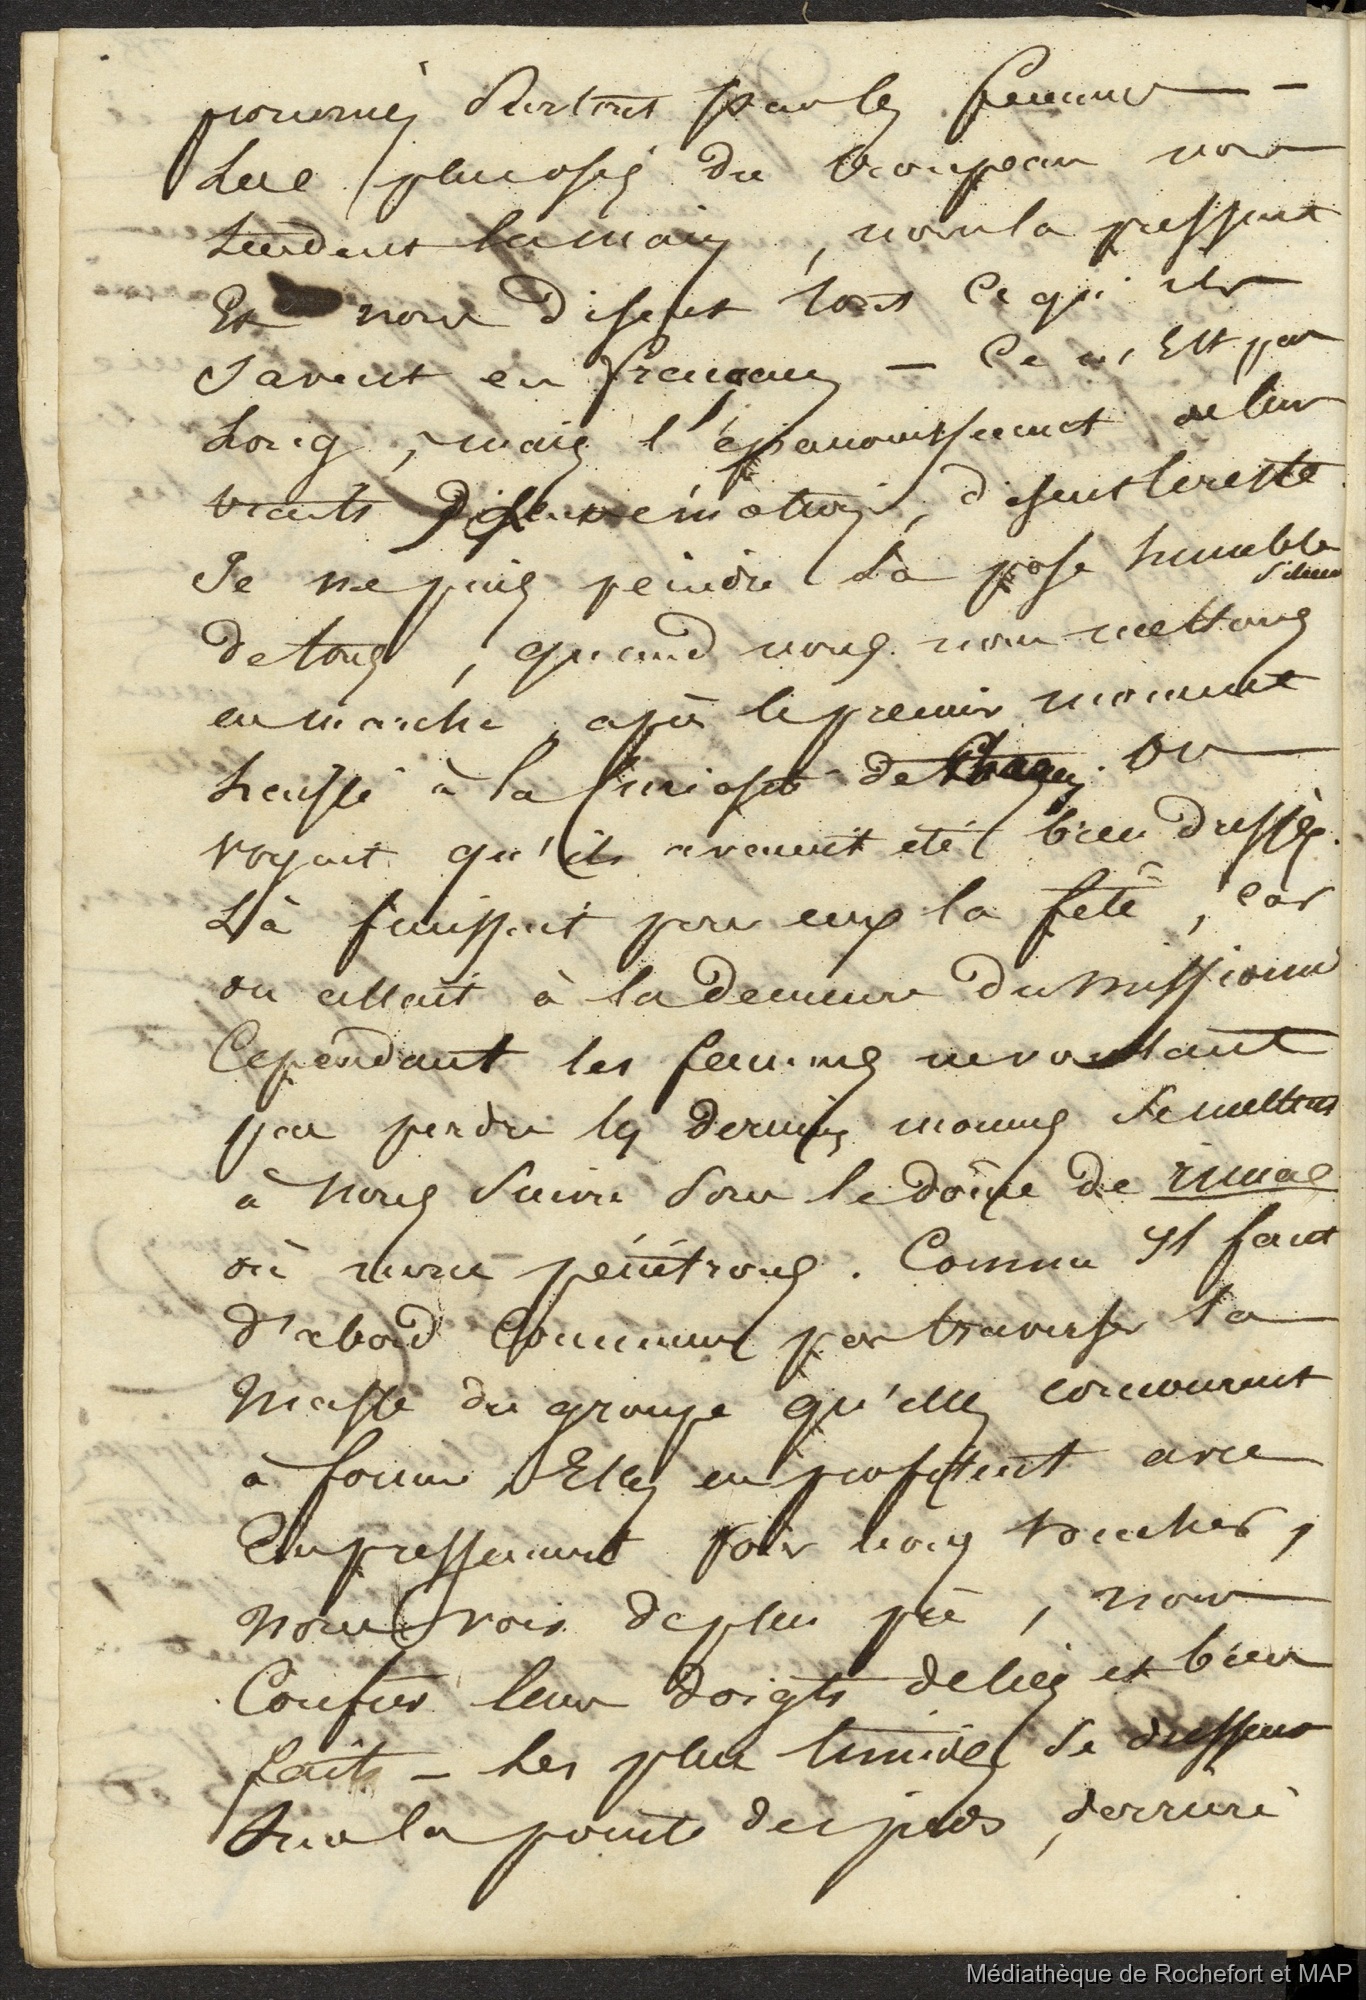 surtout par les femmes —
Les plus osés du troupeau nous
tendent la main, nous la pressent
Et nous disent tout ce qu'ils
savent en français — Ce n'est pas
Long, mais l'épanouissement de leur
traits, disent le reste
Je ne puis peindre La pose humble
silen
de tous, quand nous nous mettons
en marche après le premier moment
Laissé à la curiosité de chaque. On
voyait qu'ils avaient été bien dressés.
Là finissait pour eux la fête, car
on allait à la demeure du missionn
Cependant les femmes ne voulant
pas perdre les derniers momens Se mettent
à nous Suivre Sous le dôme de rimas
où nous pénétrons. Comme Il faut
d'abord Commencer par traverser la
Masse du groupe qu'elles concourent
à former, Elles en profitent avec
Empressement pour nous toucher,
nous voir de plus près, nous
Confier leurs doigts deliés et bien
faits — Les plus timides Se dressent
Sur la pointe des pieds, derrière
Médiathèque de Rochefort et MAP